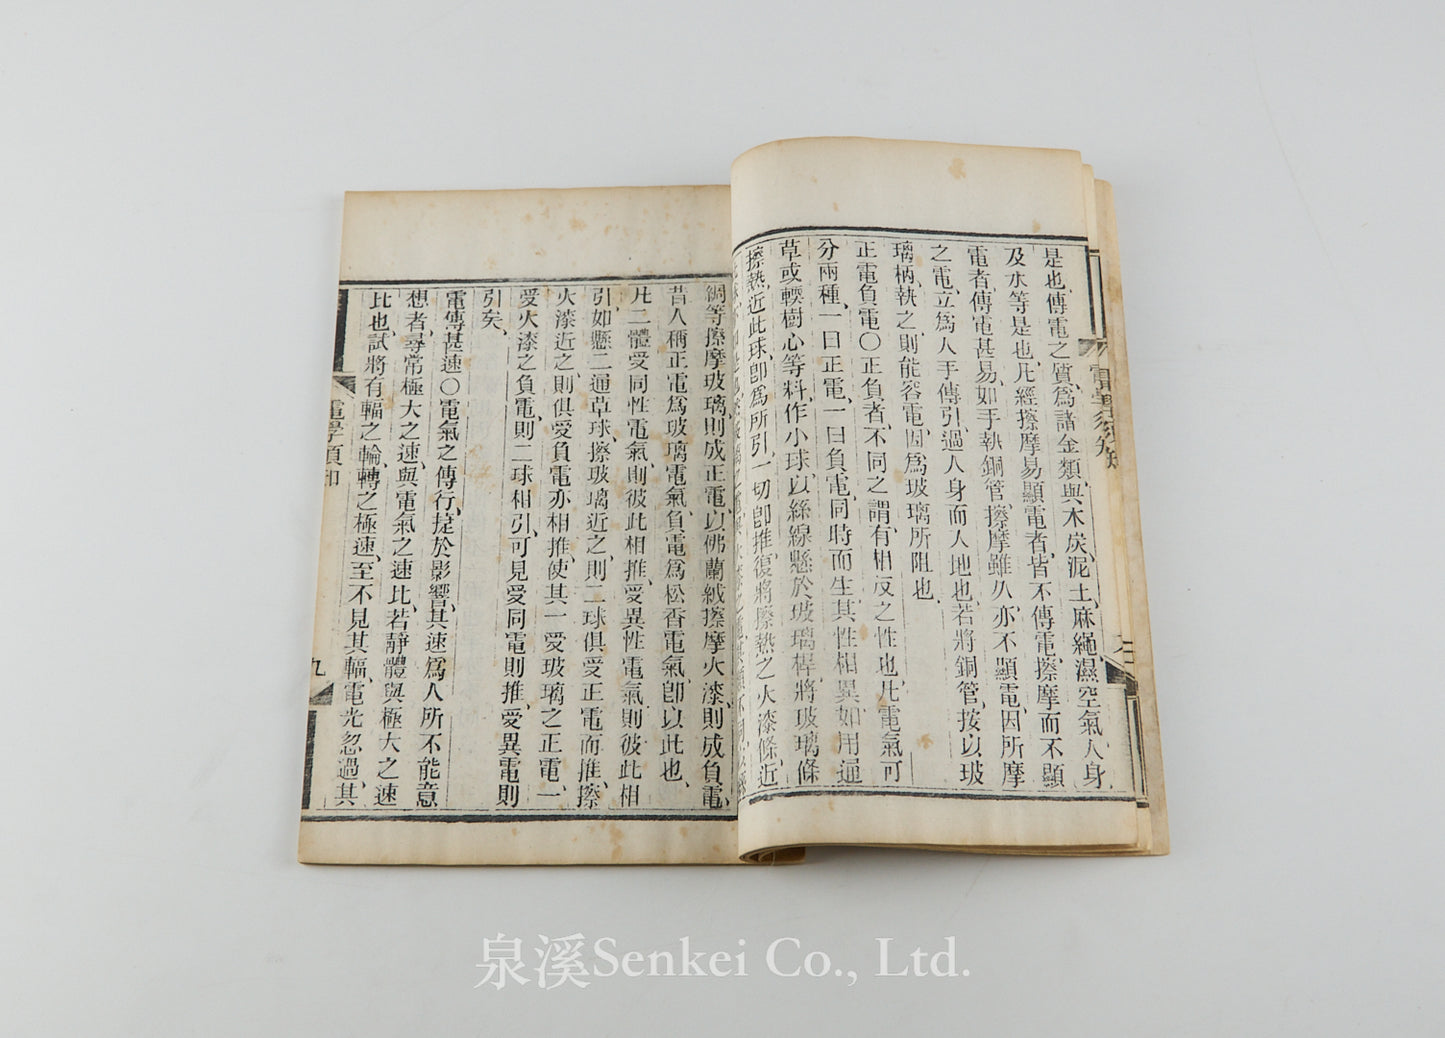 是也、傳電之質、爲諸金類與木炭、泥土、麻繩、濕空氣、人身
及水等是也、凡經擦摩易顯電者、皆不傳電、擦摩而不顯
電者、傳電甚易、如手執銅管、擦摩雖久、亦不顯電、因所摩
之電、立爲人手傳引、過人身而入地也、若將銅管、按以玻
璃柄、執之、則能容電、因爲玻璃所阻也、
正電負電〇正負者、不同之謂、有相反之性也、凡電氣可
分兩種、一曰正電、一曰負電、同時而生、其性相異、如用通
草或輭樹心等料、作小球、以絲線懸於玻璃桿、將玻璃條
擦熱、近此球、卽爲所引、一切卽推、復將擦熱之火漆條近
電學須知
綢等擦摩玻璃、則成正電、以佛蘭絨擦摩火漆、則成負電、
昔人稱正電爲玻璃電氣、負電爲松香電氣、卽以此也、
凡二體受同性電氣、則彼此相推、受異性電氣、則彼此相
引、如懸二通草球、擦玻璃近之、則二球俱受正電而推、擦
火漆近之、則俱受負電亦相推、使其一受玻璃之正電、一
受火漆之負電、則二球相引、可見受同電則推、受異電則
引矣、
電傳甚速〇電氣之傳行、捷於影響、其速爲人所不能意
想者、尋常極大之速、與電氣之速比、若靜體與極大之速
比也、試將有輻之輪、轉之極速、至不見其輻、電光忽過、其
電學須知
九
泉溪Senkei Co., Ltd.